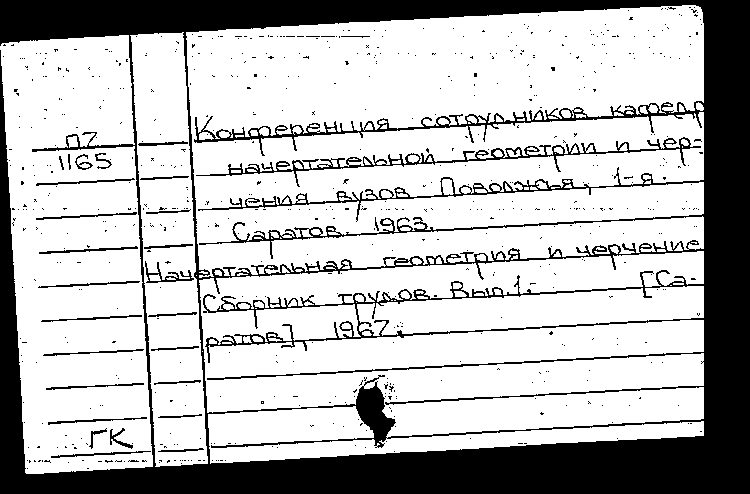 П7
1165
Конференция сотрудников кафедр
начертательной геометрии и чер-
чения вузов Поволжья, 1-я.
Саратов. 1963.
Начертательная геометрия и черчение
Сборник трудов. Вып. 1. [Са-
ратов], 1967.
ГК